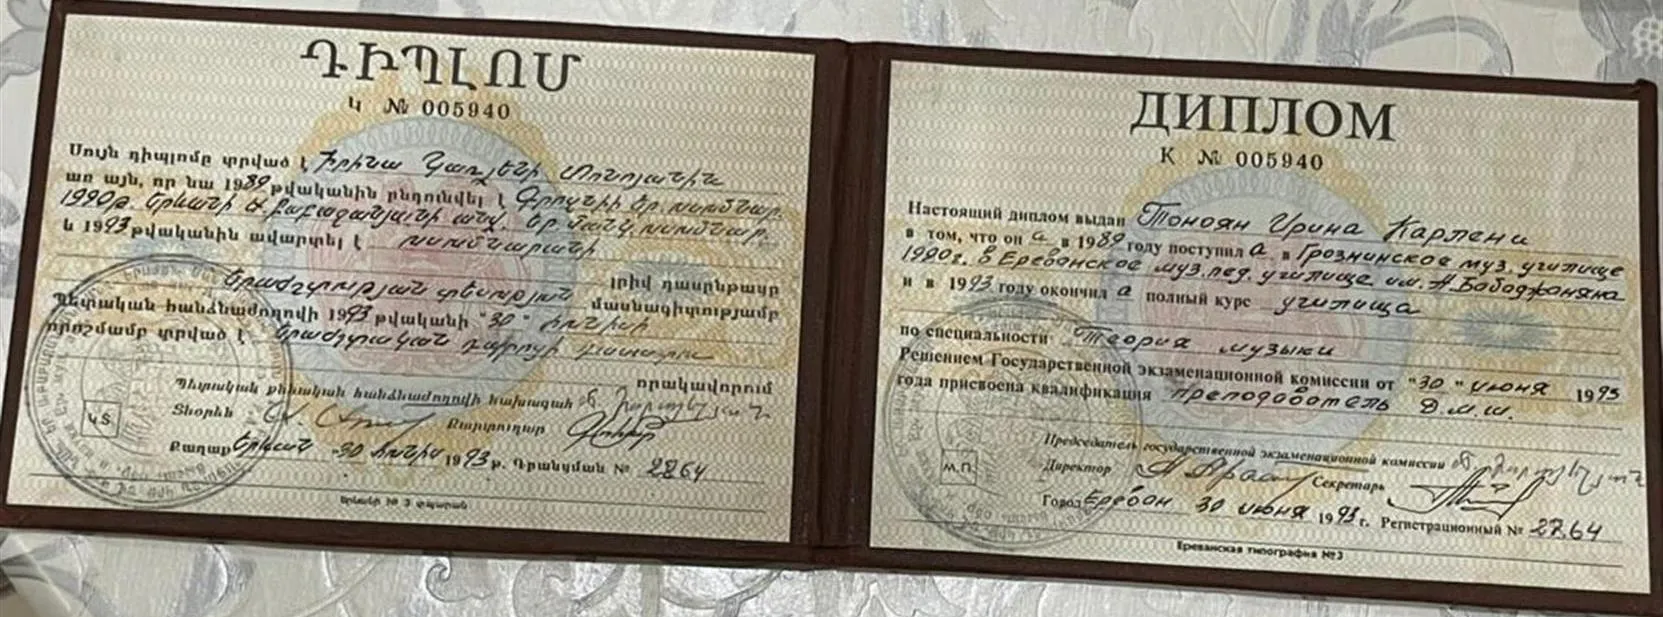 ԴԻՊԼՈՄ
Կ № 005940
Սույն դիպլոմը տրված է Իրինա Կառլենի Տոնոյանին
առ այն, որ նա 1989 թվականին ընդունվել է Գրոզնիի եր. ուսումնար.
1990թ. Երևանի Ա. Բաբաջանյանի անվ. եր. մանկ. ուսումնար.
և 1993 թվականին ավարտել է ուսումնարանի
լրիվ դասընթացը
երաժշտության տեսություն մասնագիտությամբ
Պետական հանձնաժողովի 1993 թվականի "30" հունիսի
որոշմամբ տրված է երաժշտական դպրոցի դասատու
որակավորում
Պետական քննական հանձնաժողովի նախագահ
Տնօրեն Քարտուղար
Կ.Տ.
Քաղաք Երևան 30 հունիս 1993 թ. Գրանցման № 2764
Երևանի № 3 տպարան
ДИПЛОМ
К № 005940
Настоящий диплом выдан Тоноян Ирина Карлени
в том, что он а в 1989 году поступил а в Грозненское муз. училище
1990г. в Ереванское муз. пед. училище им. А. Бабаджаняна
и в 1993 году окончил а полный курс училища
по специальности Теория музыки
Решением Государственной экзаменационной комиссии от "30" июня 1993
года присвоена квалификация преподаватель Д.М.Ш.
Председатель государственной экзаменационной комиссии
Директор Секретарь
М.П.
Город Ереван 30 июня 1993 г. Регистрационный № 2764
Ереванская типография №3